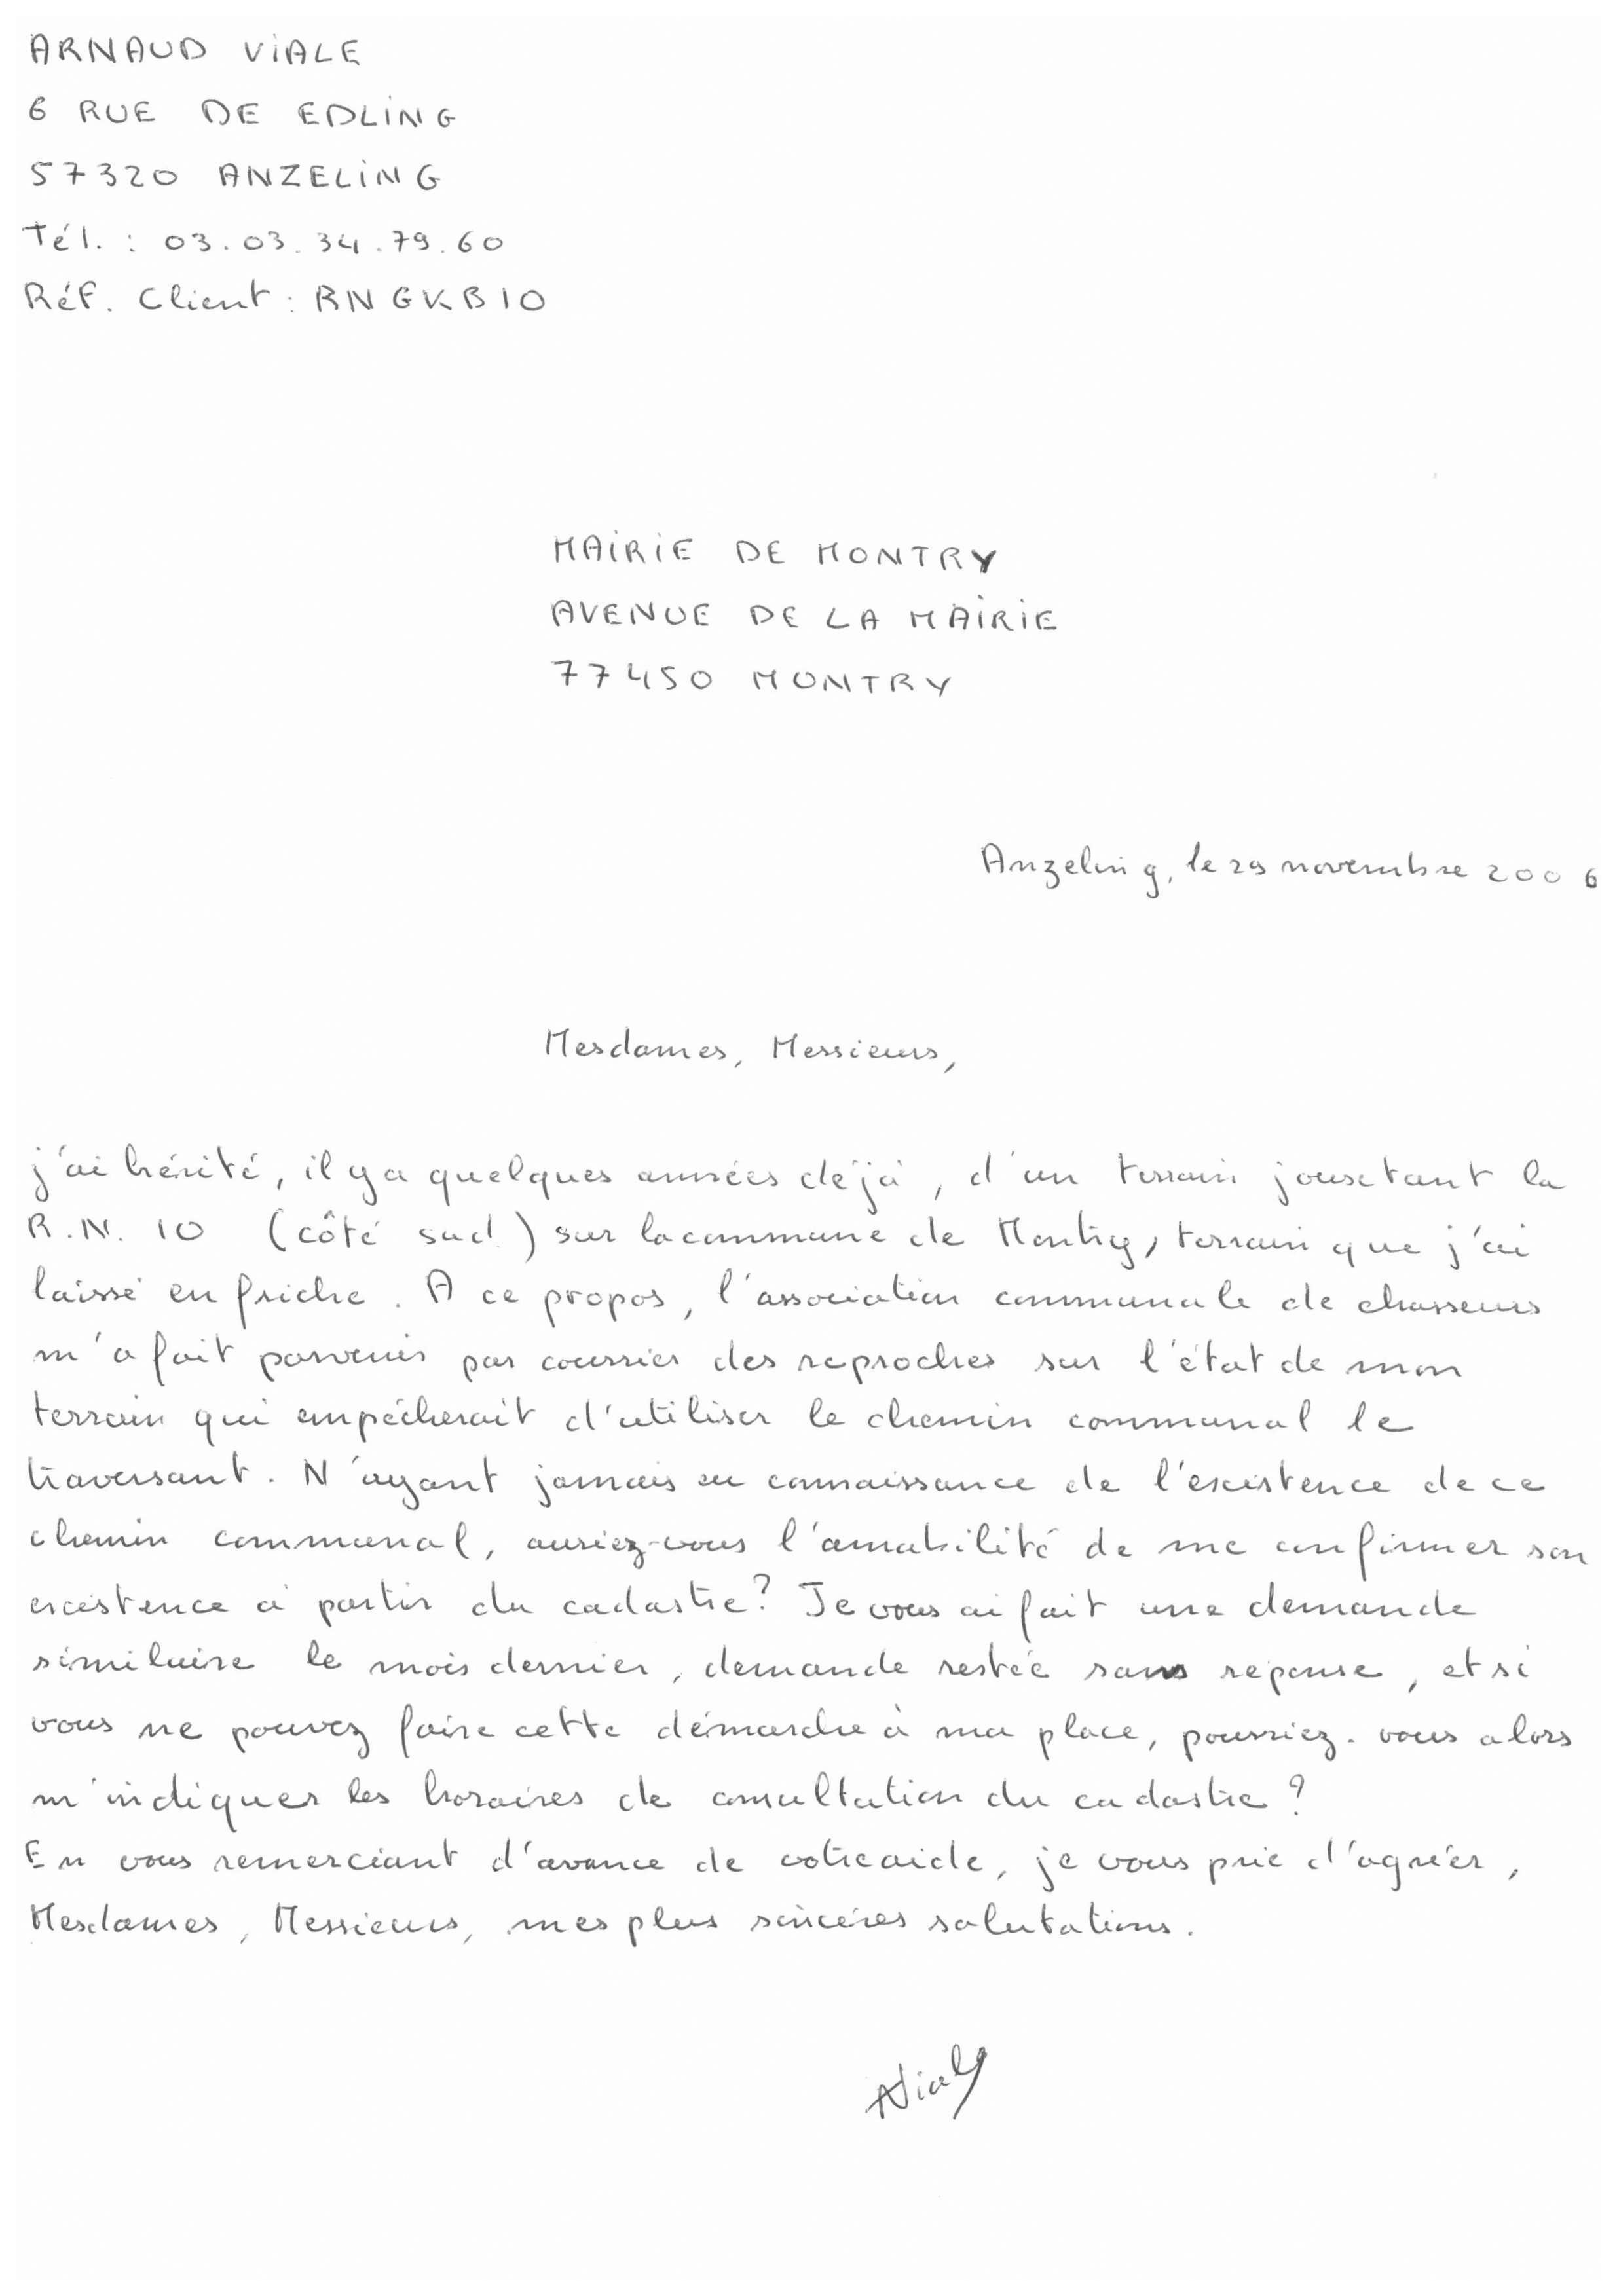 ARNAUD VIALE
6 RUE DE EDLING
57320 ANZELING
Tél. : 03.03.34.79.60
Réf. Client : RNGKB10
MAIRIE DE MONTRY
AVENUE DE LA MAIRIE
77450 MONTRY
Anzeling, le 29 novembre 2006
Mesdames, Messieurs,
j'ai hérité, il y a quelques années déjà, d'un terrain jouxtant la
R.N. 10 (côté sud) sur la commune de Montry, terrain que j'ai
laissé en friche. A ce propos, l'association communale de chasseurs
m'a fait parvenir par courrier des reproches sur l'état de mon
terrain qui empêcherait d'utiliser le chemin communal le
traversant. N'ayant jamais eu connaissance de l'existence de ce
chemin communal, auriez-vous l'amabilité de me confirmer son
existence à partir du cadastre ? Je vous ai fait une demande
similaire le mois dernier, demande restée sans réponse, et si
vous ne pouvez faire cette démarche à ma place, pourriez-vous alors
m'indiquer les horaires de consultation du cadastre ?
En vous remerciant d'avance de votre aide, je vous prie d'agréer,
Mesdames, Messieurs, mes plus sincères salutations.
AViale